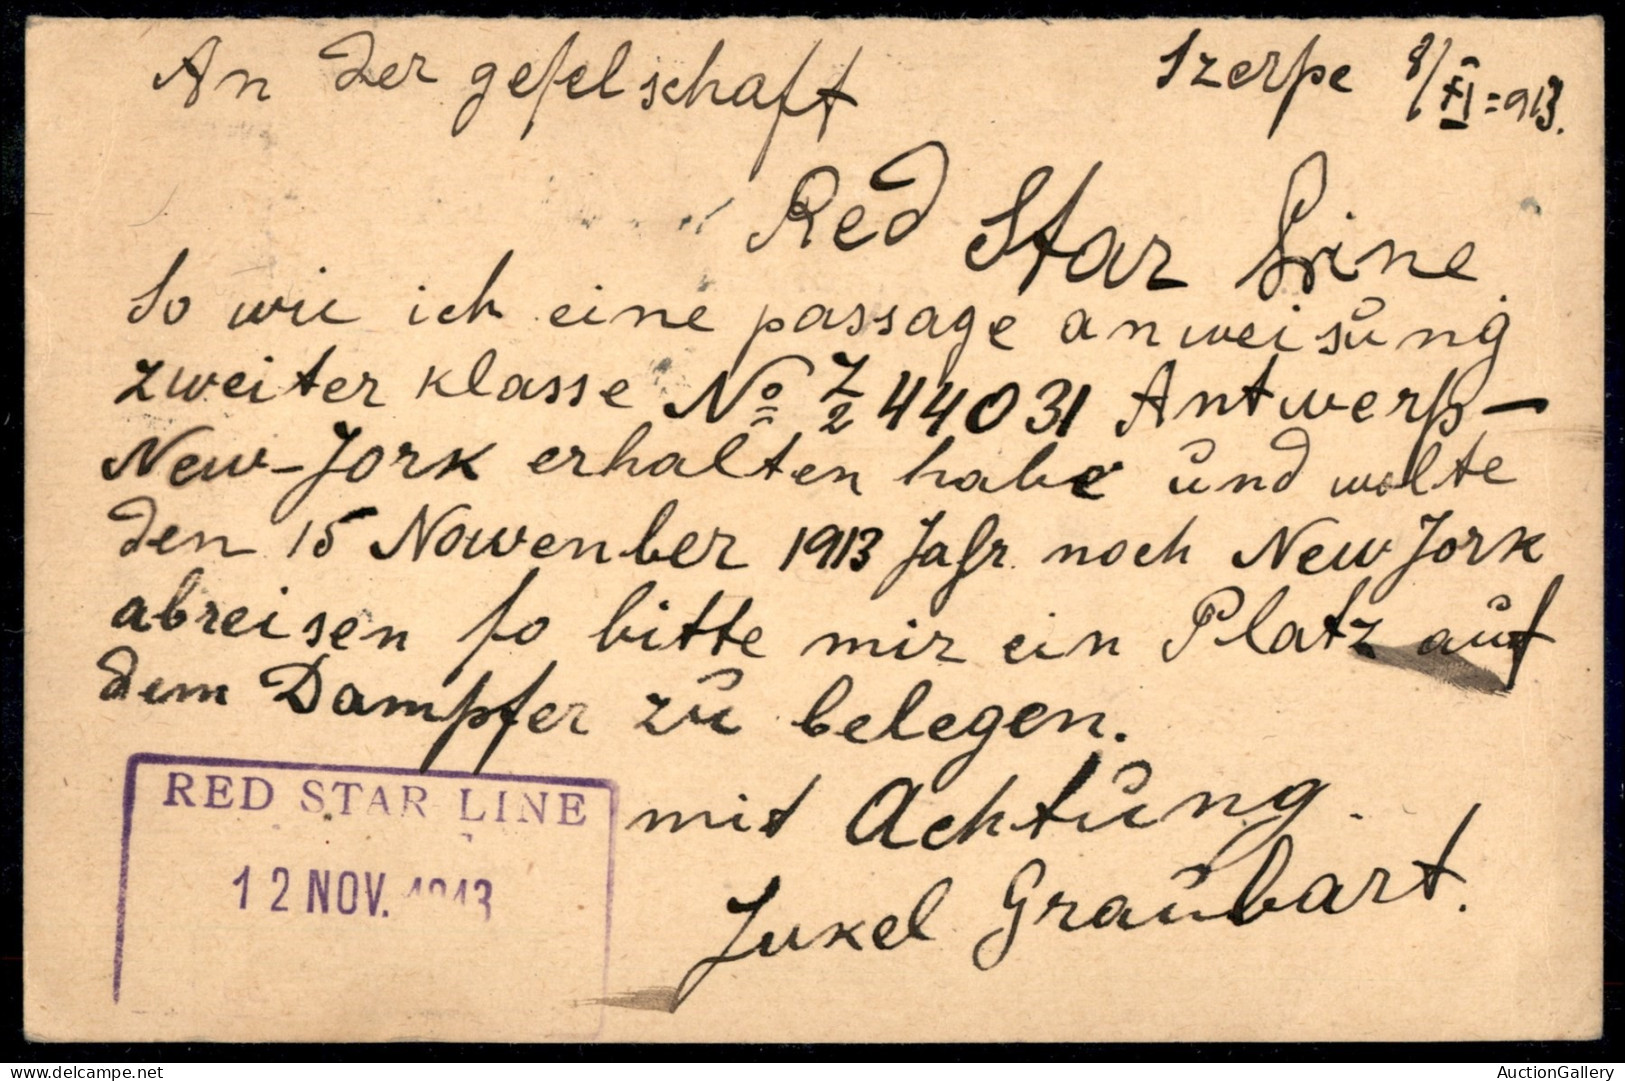 An der geselschaft
Szerpe 8/XI=913.
Red Star Line
So wie ich eine passage anweisung
zweiter klasse No Z/2 44031 Antwerp-
New-Jork erhalten habe und wolte
den 15 Nowenber 1913 Jahr noch New Jork
abreisen so bitte mir ein Platz auf
dem Dampfer zu belegen.
mit Achtung.
Jukel Graubart.
RED STAR LINE
12 NOV. 1913
AuctionGallery